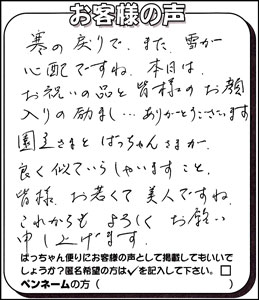 お客様の声
寒の戻りで、また、雪が
心配ですね。本日は、
お祝いの品と皆様のお顔
入りの励まし…ありがとうございます
園主さまとばっちゃんさまが、
良く似ていらしゃいますこと、
皆様、お若くて美人ですね。
これからも よろしく お願い
申し上げます。
ばっちゃん便りにお客様の声として掲載してもいいで
しょうか?匿名希望の方は✓を記入して下さい。□
ペンネームの方（　　　　　　　　）